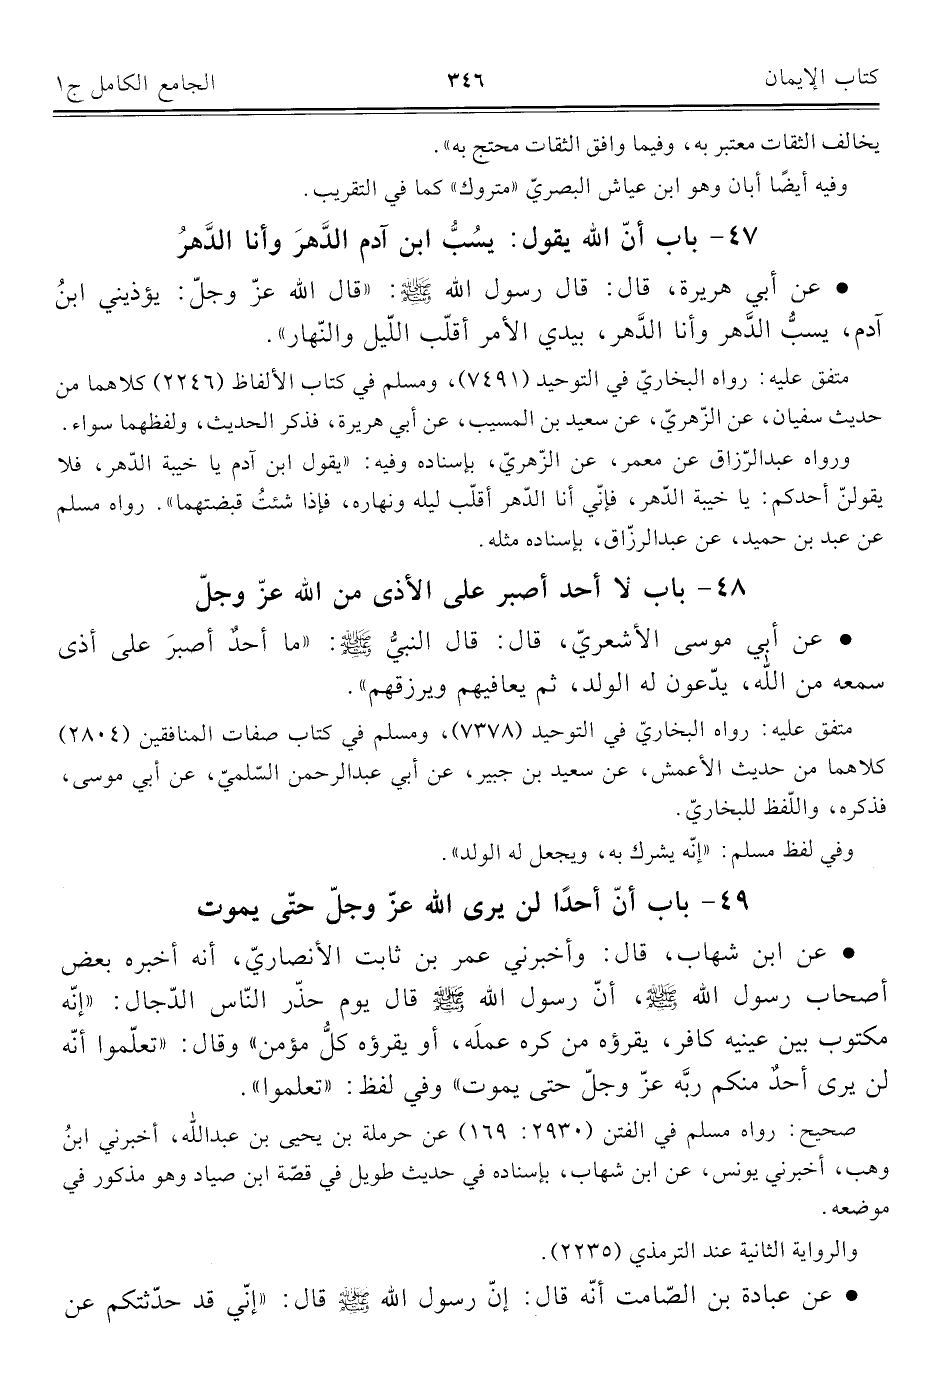 كتاب الإيمان ٣٤٦ الجامع الكامل ج١
يخالف الثقات معتبر به، وفيما وافق الثقات محتج به».
وفيه أيضًا أبان وهو ابن عياش البصريّ «متروك» كما في التقريب.
٤٧- باب أنّ الله يقول: يسُبُّ ابن آدم الدَّهرَ وأنا الدَّهرُ
• عن أبي هريرة، قال: قال رسول الله ﷺ: «قال الله عزّ وجلّ: يؤذيني ابنُ
آدم، يسبُّ الدَّهر وأنا الدَّهر، بيدي الأمر أقلّب اللّيل والنّهار».
متفق عليه: رواه البخاريّ في التوحيد (٧٤٩١)، ومسلم في كتاب الألفاظ (٢٢٤٦) كلاهما من
حديث سفيان، عن الزّهريّ، عن سعيد بن المسيب، عن أبي هريرة، فذكر الحديث، ولفظهما سواء.
ورواه عبدالرّزاق عن معمر، عن الزّهريّ، بإسناده وفيه: «يقول ابن آدم يا خيبة الدّهر، فلا
يقولنّ أحدكم: يا خيبة الدّهر، فإنّي أنا الدّهر أقلّب ليله ونهاره، فإذا شئتُ قبضتهما». رواه مسلم
عن عبد بن حميد، عن عبدالرزاق، بإسناده مثله.
٤٨- باب لا أحد أصبر على الأذى من الله عزّ وجلّ
• عن أبي موسى الأشعريّ، قال: قال النبيُّ ﷺ: «ما أحدٌ أصبرَ على أذى
سمعه من اللّه، يدّعون له الولد، ثم يعافيهم ويرزقهم».
متفق عليه: رواه البخاريّ في التوحيد (٧٣٧٨)، ومسلم في كتاب صفات المنافقين (٢٨٠٤)
كلاهما من حديث الأعمش، عن سعيد بن جبير، عن أبي عبدالرحمن السّلميّ، عن أبي موسى،
فذكره، واللّفظ للبخاريّ.
وفي لفظ مسلم: «إنّه يشرك به، ويجعل له الولد».
٤٩- باب أنّ أحدًا لن يرى الله عزّ وجلّ حتّى يموت
• عن ابن شهاب، قال: وأخبرني عمر بن ثابت الأنصاريّ، أنه أخبره بعض
أصحاب رسول الله ﷺ، أنّ رسول الله ﷺ قال يوم حذّر النّاس الدّجال: «إنّه
مكتوب بين عينيه كافر، يقرؤه من كره عملَه، أو يقرؤه كلُّ مؤمن» وقال: «تعلّموا أنّه
لن يرى أحدٌ منكم ربَّه عزّ وجلّ حتى يموت» وفي لفظ: «تعلموا».
صحيح: رواه مسلم في الفتن (٢٩٣٠: ١٦٩) عن حرملة بن يحيى بن عبدالله، أخبرني ابنُ
وهب، أخبرني يونس، عن ابن شهاب، بإسناده في حديث طويل في قصّة ابن صياد وهو مذكور في
موضعه.
والرواية الثانية عند الترمذي (٢٢٣٥).
• عن عبادة بن الصّامت أنّه قال: إنّ رسول الله ﷺ قال: «إنّي قد حدّثتكم عن